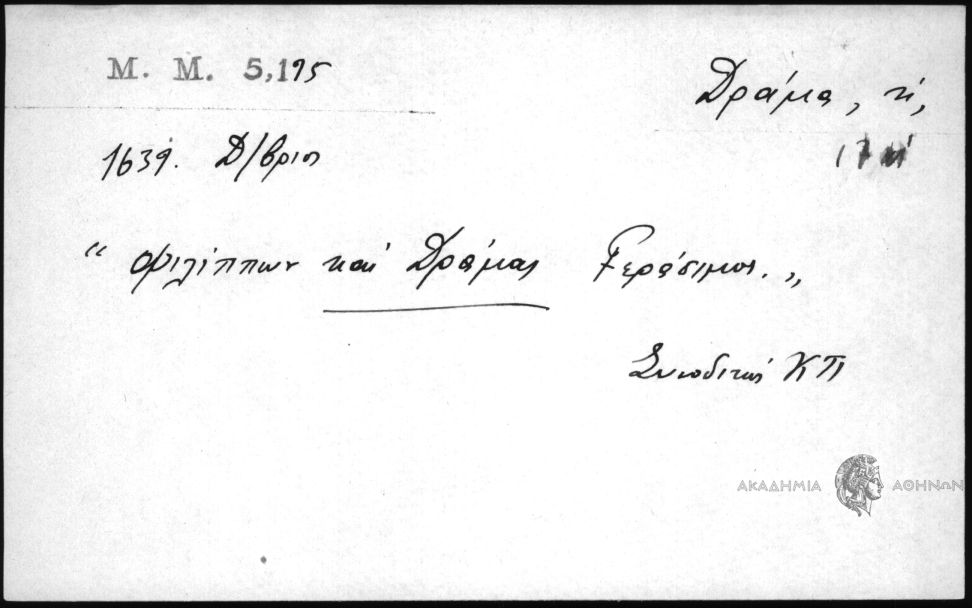 Μ. Μ. 5,175
Δράμα, ἡ,
1639. Δ/βριος
17
“ Φιλίππων καὶ Δράμας Γεράσιμος. „
Συνοδικὸς ΚΠ
ΑΚΑΔΗΜΙΑ ΑΘΗΝΩΝ